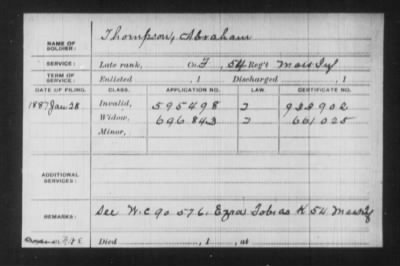 NAME OF SOLDIER: Thompson, Abraham
SERVICE: Late rank, Co. F, 54 Reg't Mass Inf
TERM OF SERVICE: Enlisted , 1 Discharged , 1
DATE OF FILING. CLASS. APPLICATION NO. LAW. CERTIFICATE NO.
1887 Jan 28 Invalid, 595498 922902
Widow, 696843 661025
Minor,
ADDITIONAL SERVICES:
REMARKS: See W.C 90 576. Ezra Tobias K 54 Mass Inf
Died , 1 , at